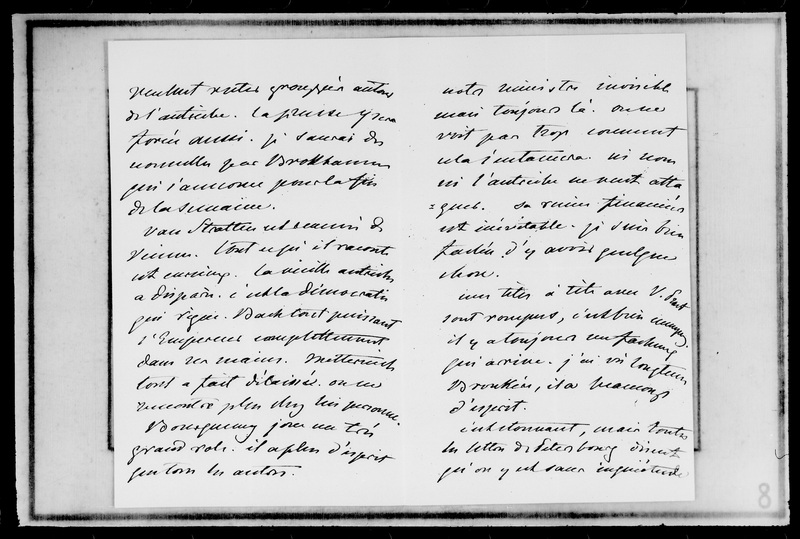 rester grouppés autour
de l'autriche. la prusse y sera
forcée aussi. je saurai des
nouvelles par Brokhausen
qui s'annonce pour la fin
de la semaine.
Van Stratten est revenu de
Vienne. tout ce qu'il raconte
est curieux. la vieille autriche
a disparu. c'est la démocratie
qui règne. Bach tout puissant
l'Empereur complettement
dans ses mains. Metternich
tout a fait délaissé. on ne
rencontre plus chez lui personne.
Bourqueney joue un très
grand role. il a plus d'esprit
que tous les autres.
notre ministre invisible
mais toujours là. on ne
voit pas trop comment
cela s'entamera. ni nous
ni l'autriche ne veut atta
=quer. sa ruine financière
est inévitable. je suis bien
fachée d'y avoir quelque
chose.
mes têtes à tête avec V. Strat
sont rompus, c'est bien ennuyeux.
il y a toujours un facheux
qui arrive. j'ai vu longtems
Brouckère, il a beaucoup
d'esprit.
c'est étonnant, mais toutes
les lettres de Petersbourg disent
qu'on y est sans inquiétude
8